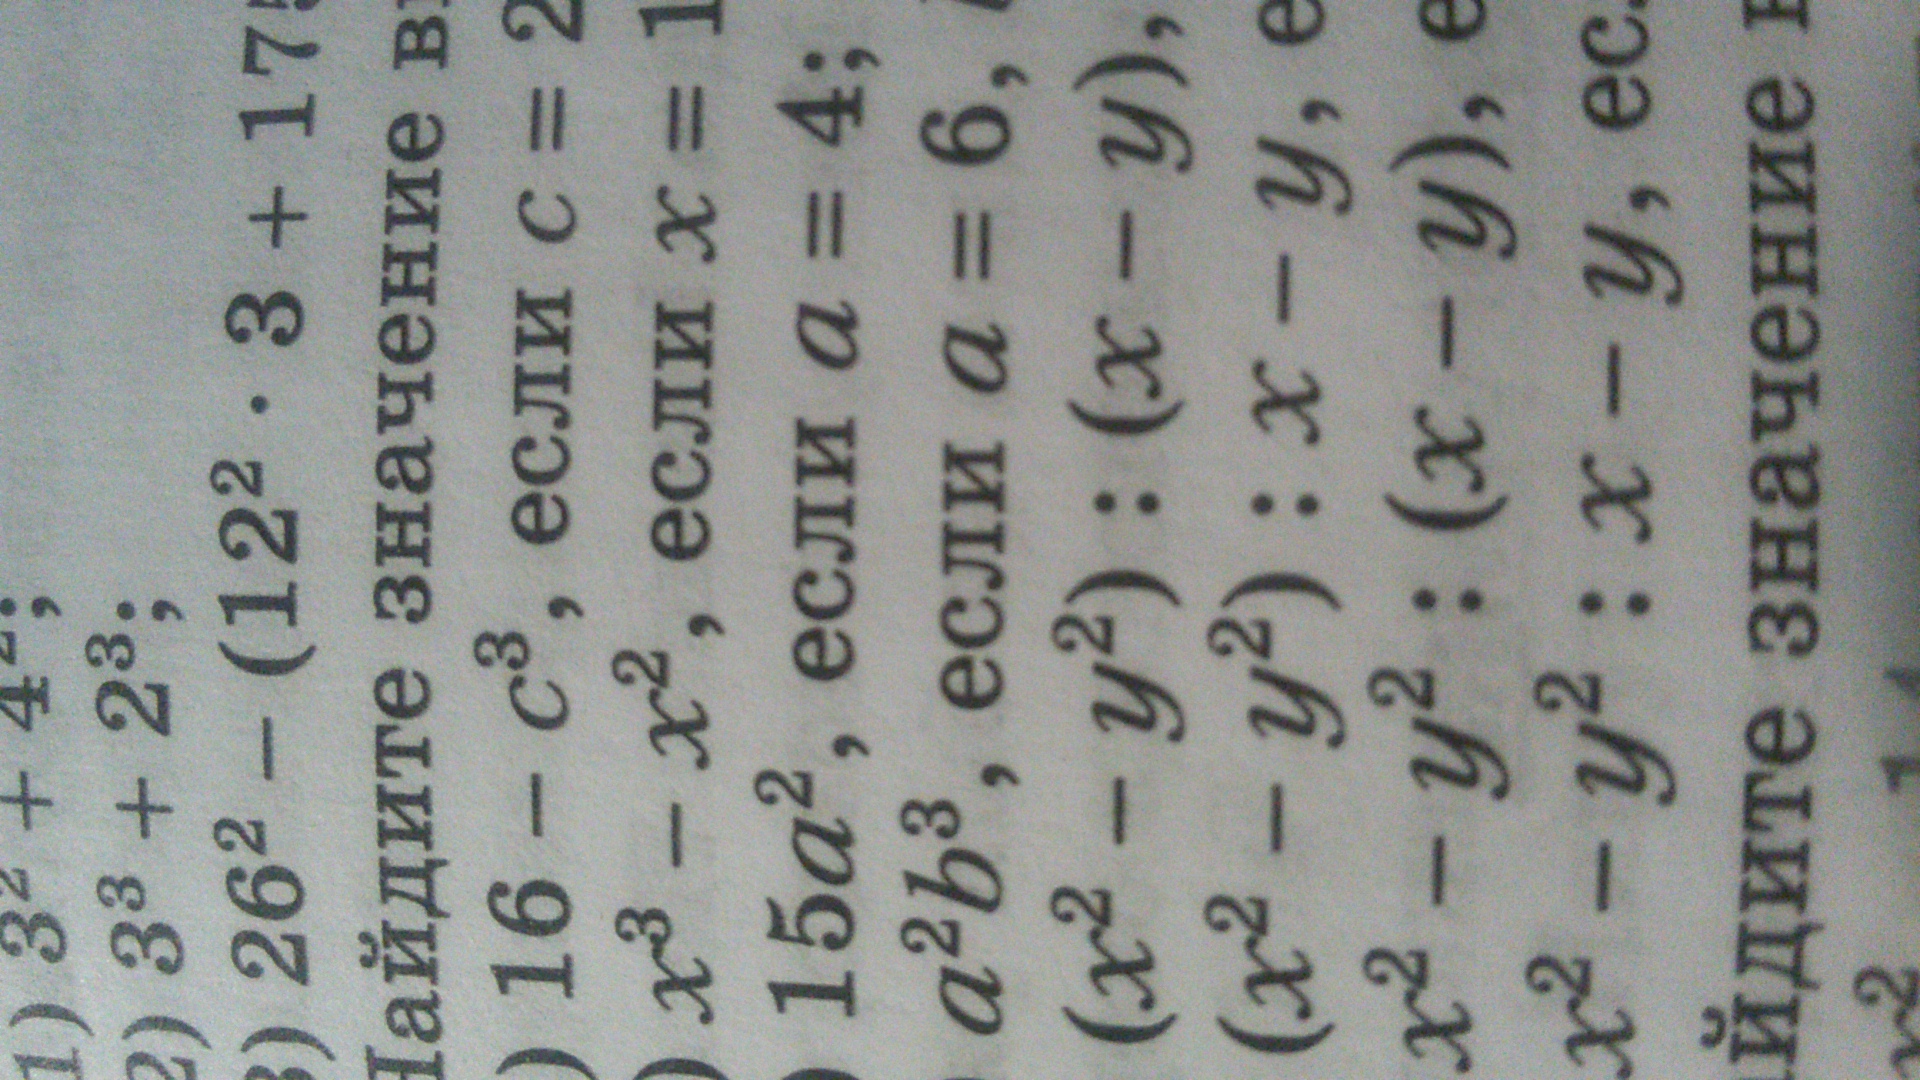 1) 3² + 4²;
2) 3³ + 2³;
3) 26² − (12² · 3 + 175
Найдите значение
) 16 − c³, если c = 2
) x³ − x², если x = 1
) 15a², если a = 4;
a²b³, если a = 6,
(x² − y²) : (x − y),
(x² − y²) : x − y, е
x² − y² : (x − y), е
x² − y² : x − y, ес
йдите значение